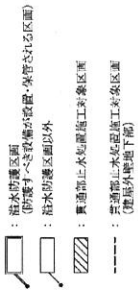 ：溢水防護区画
（防護すべき設備が設置・保管される区画）
：溢水防護区画以外
：貫通部止水処置施工対象区画
：貫通部止水処置施工対象区画
（建屋外壁地下部）